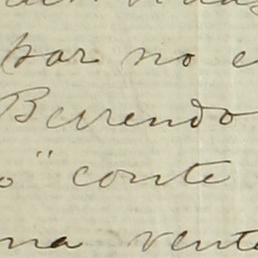 par no e
Berrendo
o" conte
na vent